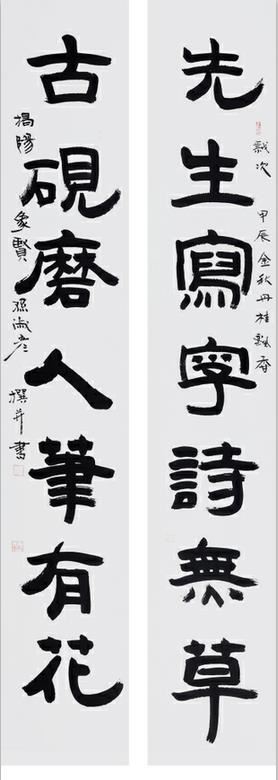 歲次甲辰金秋丹桂飄香
先生寫字詩無草
古硯磨人筆有花
揭陽象賢孫淑彥撰并書